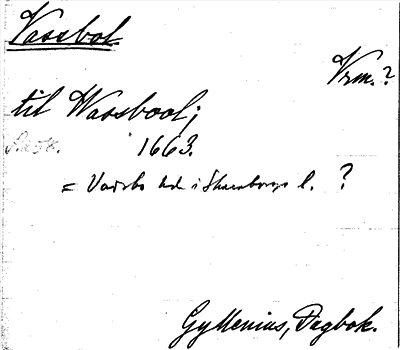 Vassbol
Vrm.?
til Wassbool;
1663.
= Vadsbo hd i Skaraborgs l. ?
Gyllenius, Dagbok.